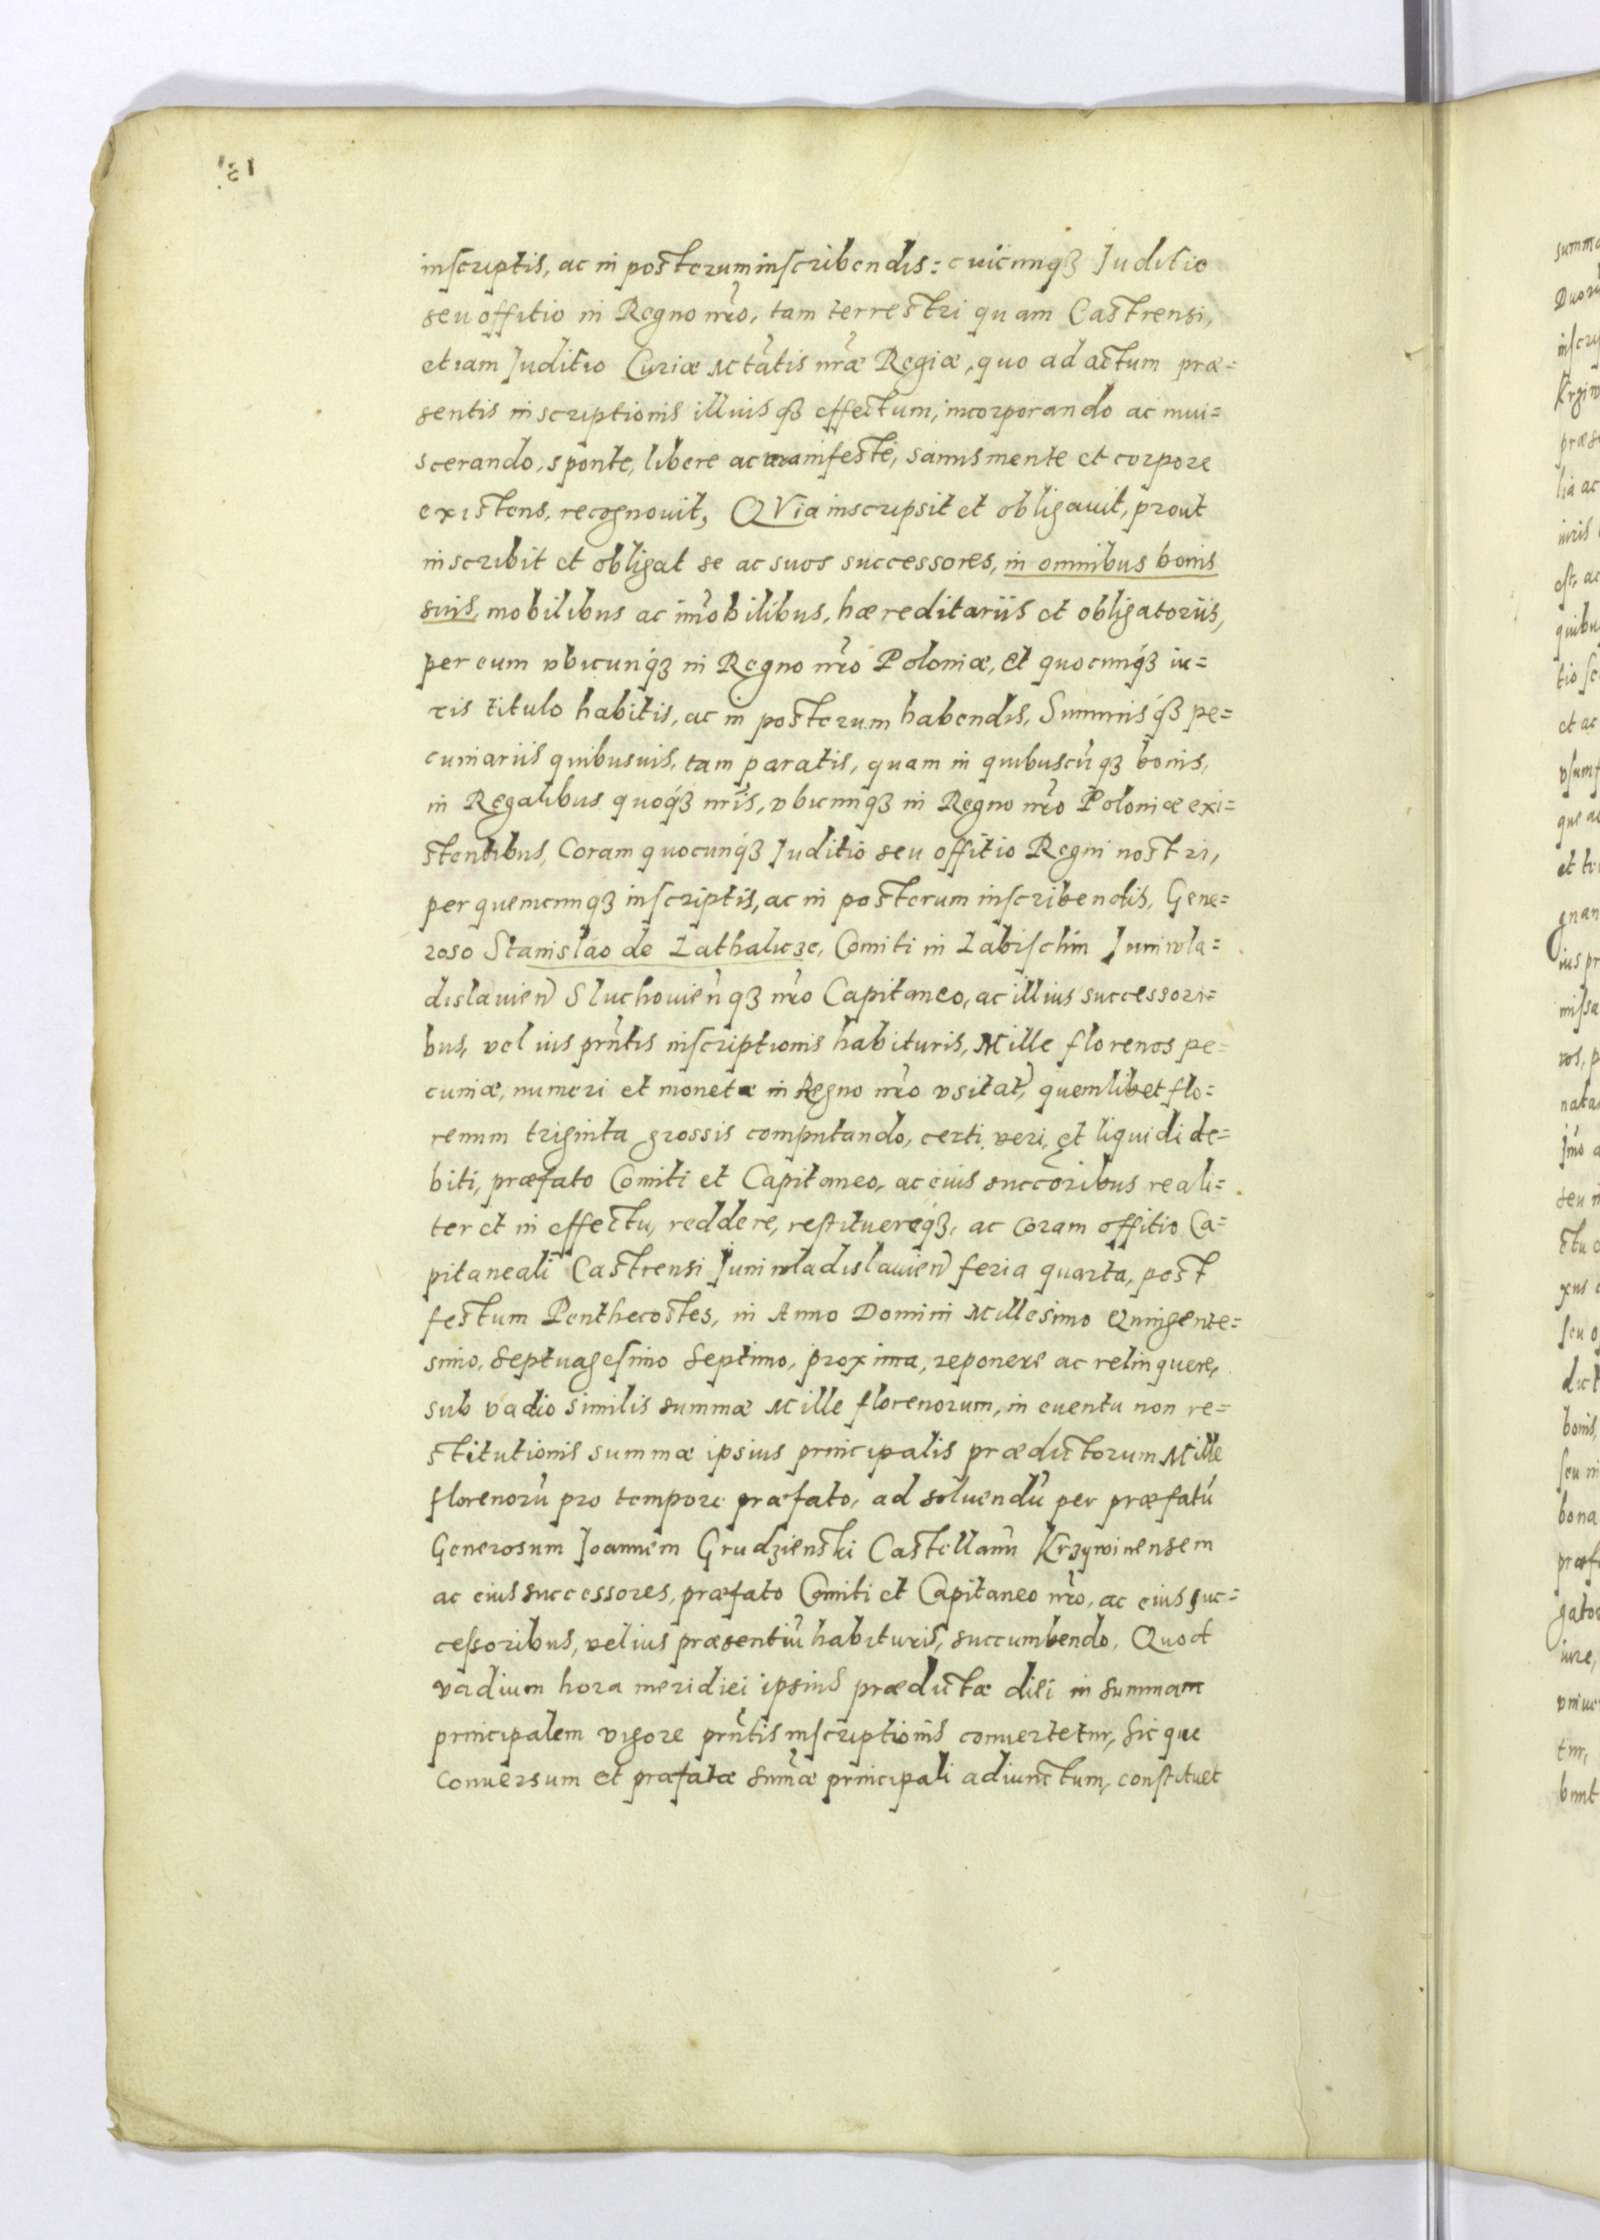 inscriptis, ac in posterum inscribendis: cuicunq́ꝫ Juditio
seu offitio in Regno nr̃o, tam terrestri quam Castrensi,
etiam Juditio Curiæ Mt̃atis nr̃æ Regiæ, quo ad actum præ=
sentis inscriptionis illiusq́ꝫ effectum, incorporando ac inui=
scerando, sponte, libere ac manifestè, sanus mente et corpore
existens, recognouit, QVia inscripsit et obligauit, prout
inscribit et obligat se ac suos successores, in omnibus bonis
suis, mobilibus ac im̃obilibus, hæreditariis et obligatoriis,
per eum vbicunq́ꝫ in Regno nr̃o Poloniæ, et quocunq́ꝫ iu=
ris titulo habitis, ac in posterum habendis, Summisq́ꝫ pe=
cuniariis quibusuis, tam paratis, quam in quibuscũqꝫ bonis,
in Regalibus quoq́ꝫ nr̃is, vbicunqꝫ in Regno nr̃o Poloniæ exi=
stentibus, Coram quocunq́ꝫ Juditio seu offitio Regni nostri,
per quemcunqꝫ inscriptis, ac in posterum inscribendis, Gene=
roso Stanislao de Lathalicze, Comiti in Labischin Juniwla=
dislauien̄ Sluchouien̄qꝫ nr̃o Capitaneo, ac illius successori=
bus, vel ius prñtis inscriptionis habituris, Mille florenos pe=
cuniæ, numeri et monetæ in Regno nr̃o vsitat̄, quemlibet flo=
renum triginta grossis computando, certi, veri, et liquidi de=
biti, præfato Comiti et Capitaneo, ac eius succõribus reali=
ter et in effectu, reddere, restituereq́ꝫ, ac coram offitio Ca=
pitaneali Castrensi Juniwladislauien̄ feria quarta, post
festum Penthecostes, in Anno Domini Millesimo Quingente=
simo, Septuagesimo Septimo, proxima, reponere ac relinquere,
sub vadio similis summæ Mille florenorum, in euentu non re=
stitutionis summæ ipsius principalis prædictorum Mille
florenorũ pro tempore præfato, ad soluendũ per præfatũ
Generosum Joannem Grudzienski Castellanũ Krzywinensem
ac eius successores, præfato Comiti et Capitaneo nr̃o, ac eius suc=
cessoribus, vel ius præsentiũ habituris, succumbendo, Quod
vadium hora meridiei ipsius prædictæ diei in summam
principalem vigore prñtis inscriptionis conuertetur, sic que
conuersum et præfatæ sum̃æ principali adiunctum, constituet